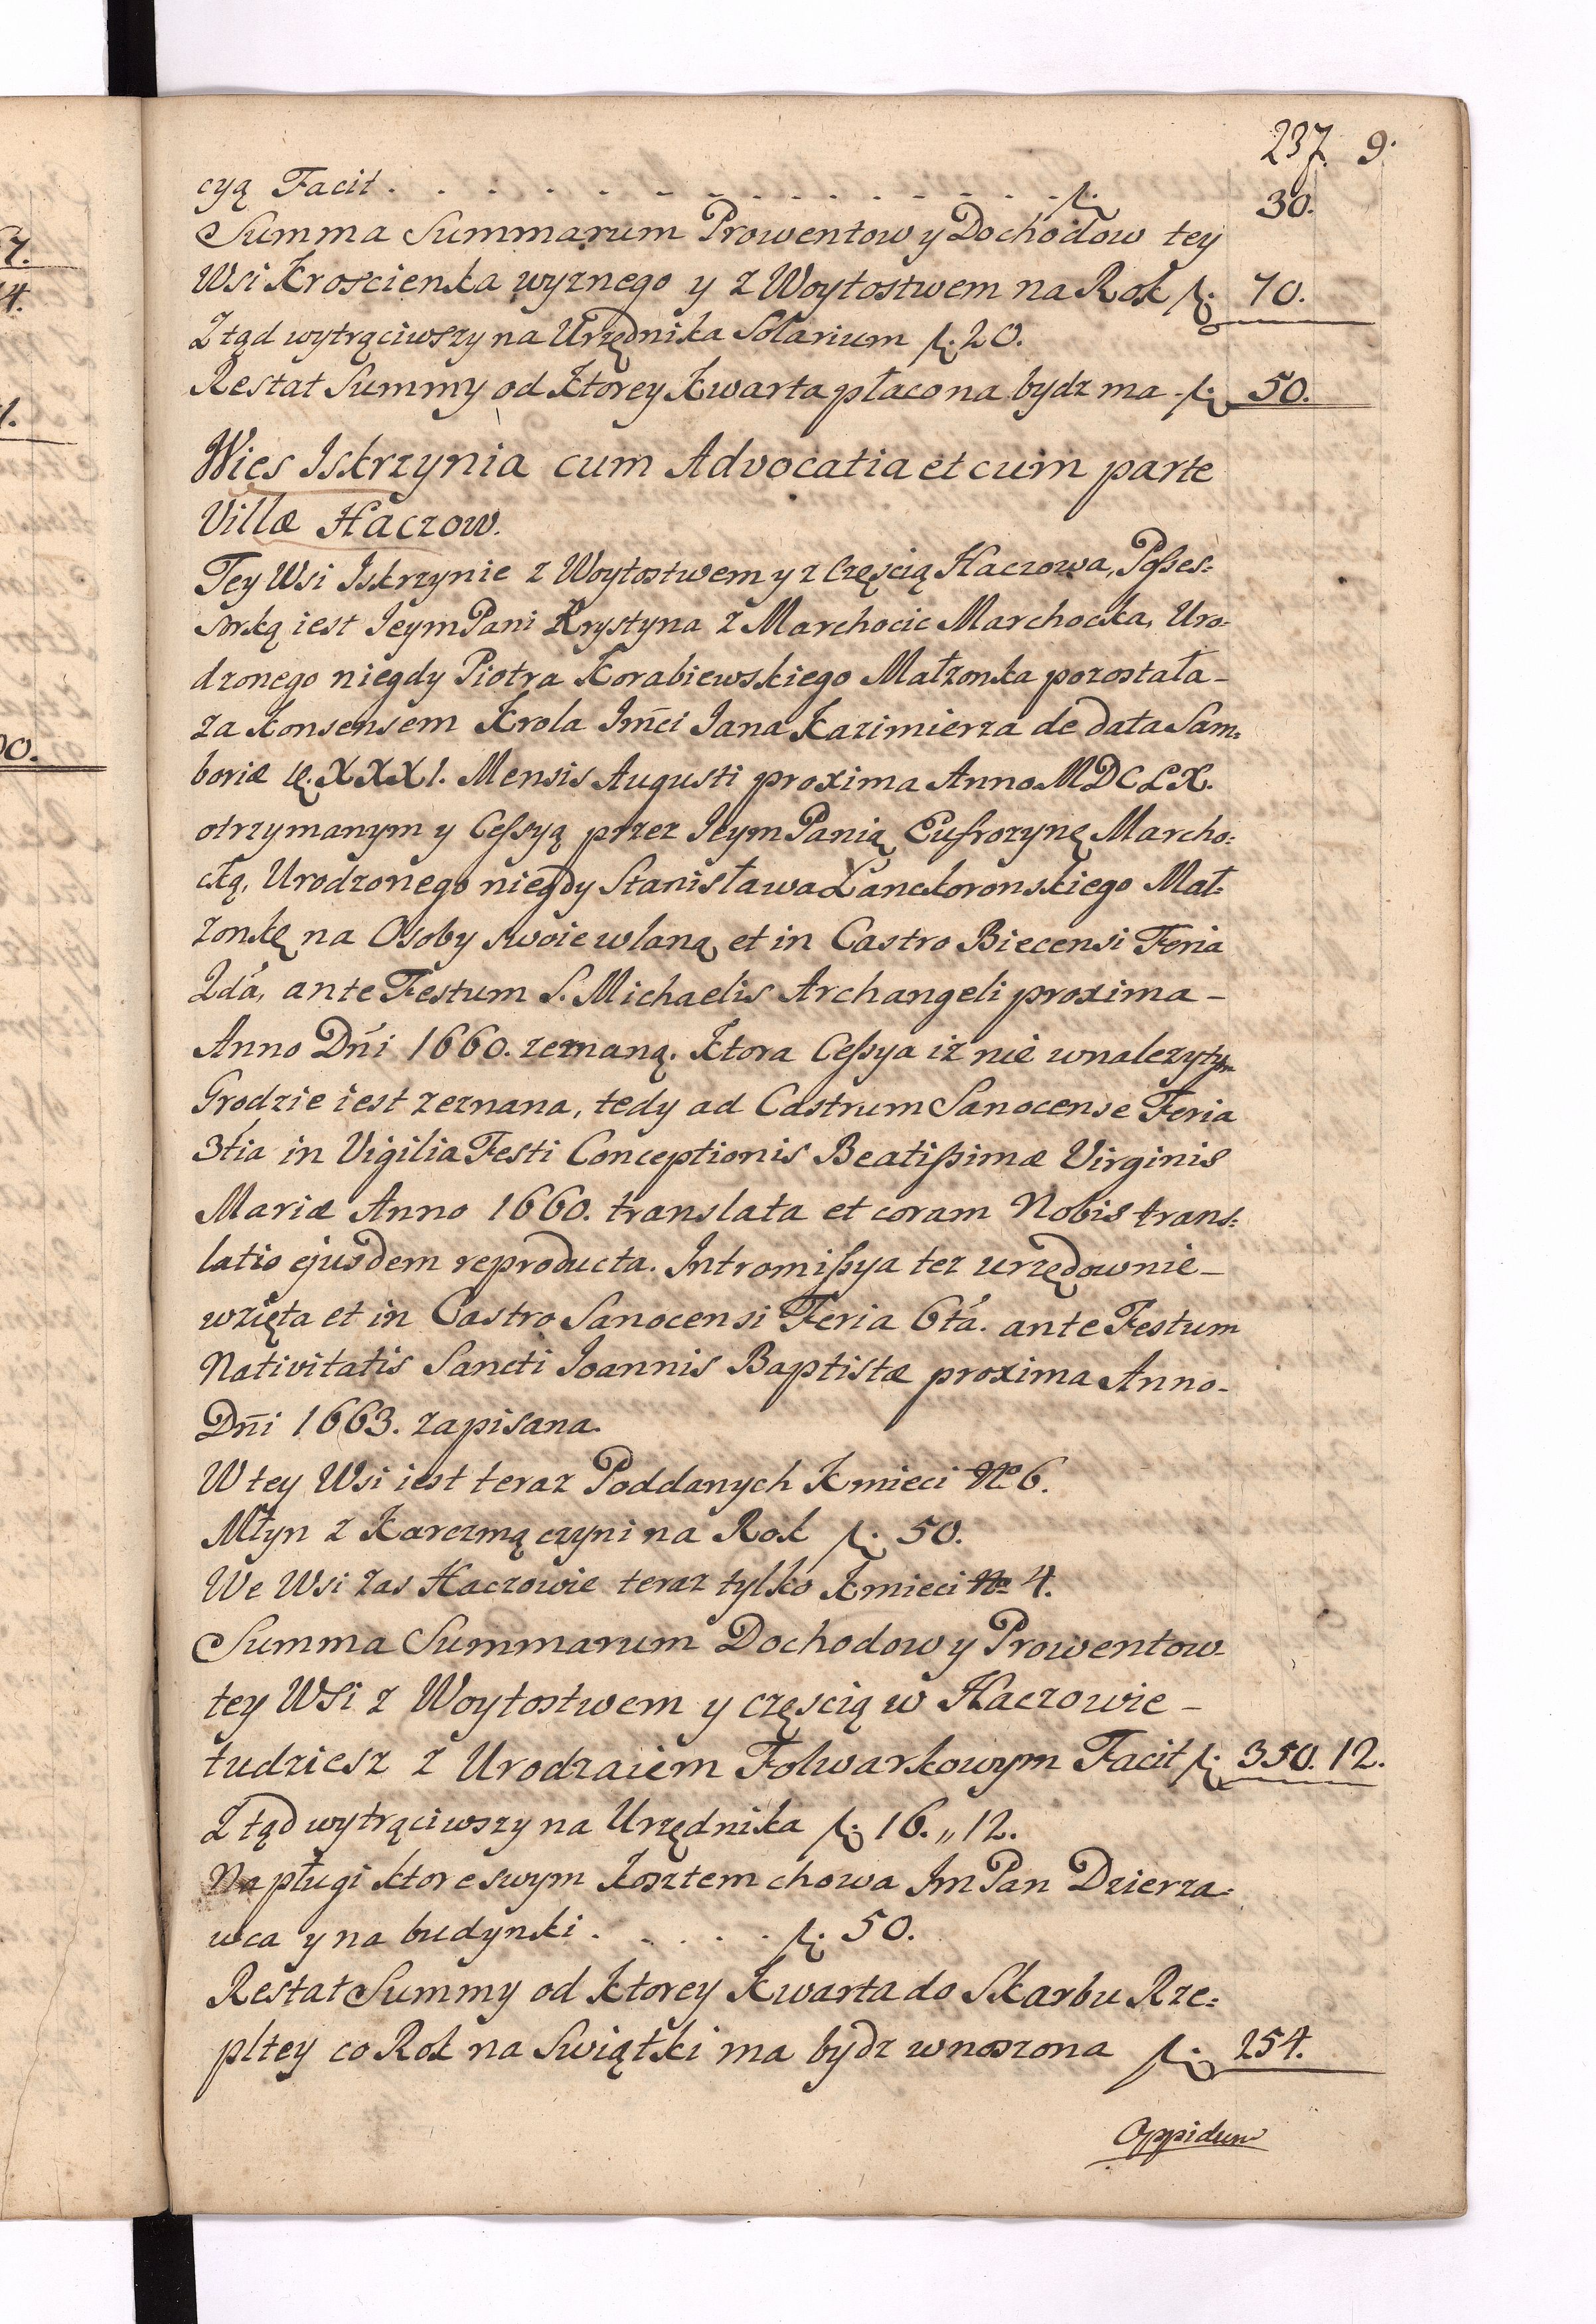 237. 9.
cyą Facit . . . . . . . . . . . . . . . fl. 30.
Summa Summarum Prowentow y Dochodow tey
Wsi Kroscienka wyznego y z Woytostwem na Rok fl. 70.
Ztąd wytrąciwszy na Urzędnika Solarium fl. 20.
Restat Summy od Ktorey Kwarta płacona bydz ma fl. 50.
Wies Iskrzynia cum Advocatia et cum parte
Villæ Haczow.
Tey Wsi Iskrzynie z Woytostwem y z Częscią Haczowa, Posses:
sorką iest Jeym Pani Krystyna z Marchocic Marchocka, Uro-
dzonego niegdy Piotra Korabiewskiego Małzonka pozostała-
za konsensem Krola Jmci Jana Kazimierza de data Sam:
boriæ XXXI. Mensis Augusti proxima Anno MDCLX.
otrzymanym y Cessyą przez Jeym Panią Eufrozynę Marcho:
cką, Urodzonego niegdy Stanisława Lanckoronskiego Mał:
zonkę na Osoby swoie wlaną et in Castro Biecensi Feria
2dá, ante Festum S. Michaelis Archangeli proxima -
Anno Dni 1660. zeznaną. Ktora Cessya iz nie w nalezytym
Grodzie iest zeznana, tedy ad Castrum Sanocense Feria
3tia in Vigilia Festi Conceptionis Beatissimæ Virginis
Mariæ Anno 1660. translata et coram Nobis trans:
latio ejusdem reproducta. Intromissya tez urzędownie -
wzięta et in Castro Sanocensi Feria 6tá. ante Festum
Nativitatis Sancti Joannis Baptistæ proxima Anno-
Dni 1663. zapisana.
W tey Wsi iest teraz Poddanych Kmieci No 6.
Młyn z Karczmą czyni na Rok fl. 50.
We Wsi zas Haczowie teraz tylko Kmieci No 4.
Summa Summarum Dochodow y Prowentow-
tey Wsi z Woytostwem y częscią w Haczowie -
tudziesz z Urodzaiem Folwarkowym Facit fl. 350. 12.
Ztąd wytrąciwszy na Urzędnika fl. 16. „ 12.
Na pługi ktore swym kosztem chowa Jm Pan Dzierza:
wca y na budynki . . . . . fl. 50.
Restat Summy od Ktorey Kwarta do Skarbu Rze:
pltey co Rok na Swiątki ma bydz wnoszona fl. 254.
Oppidum